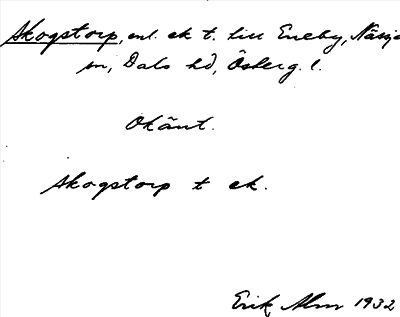 Skogstorp, enl. ek t. till Eneby, Näsja
sn, Dals hd, Österg. l.
Okänt.
Skogstorp t ek.
Erik Alm 1932